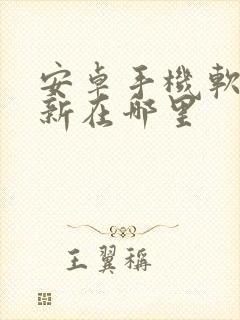 安卓手機軟
新在那里
王翼稱